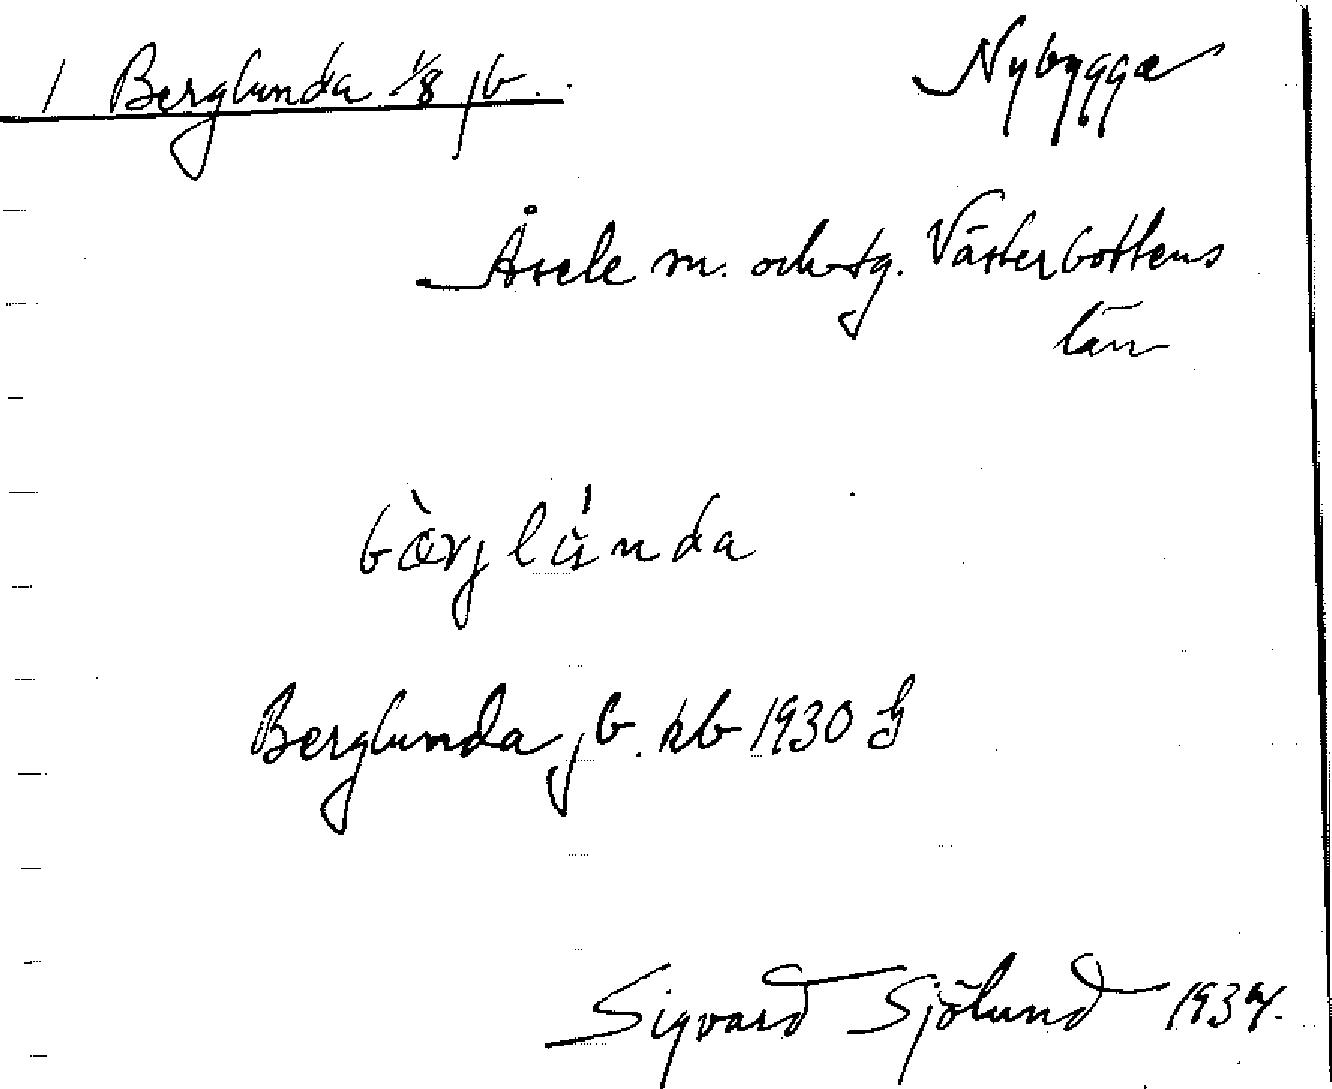 1 Berglunda 1/8 jb. Nybygge
Åsele sn. och tg. Västerbottens
län
bær̀jlúnda
Berglunda jb. kb 1930
Sigvard Sjölund 1937.